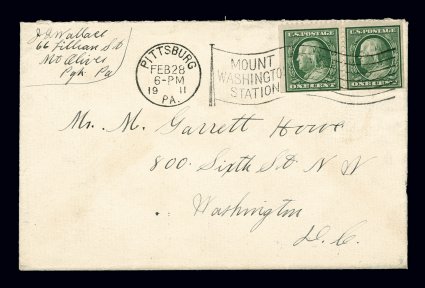 J. J. Wallace
66 Fillian St
Mt Oliver
Pgh Pa
PITTSBURG
FEB 28
6-PM
1911
PA.
MOUNT
WASHINGTON
STATION
U.S. POSTAGE
ONE CENT
U.S. POSTAGE
ONE CENT
Mr. M. Garrett Howe
800. Sixth St N W
Washington
D.C.